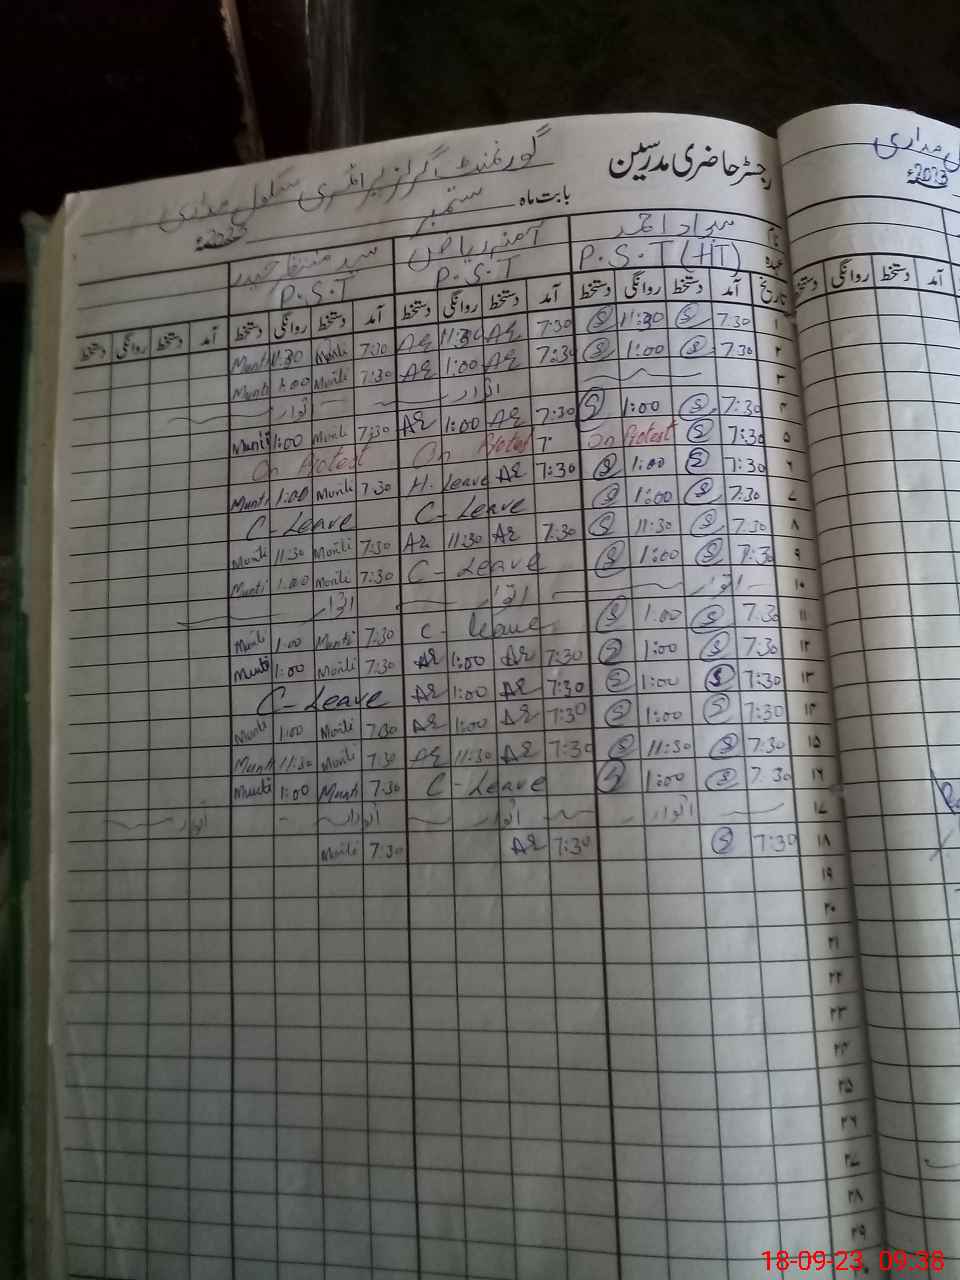 رجسٹر حاضری مدرسین گورنمنٹ گرلز پرائمری سکول مداری
بابت ماہ ستمبر 2023ء
سجاد احمد آمنہ ریاض سید منتظر حیدر
عہدہ P.S.T (HT) P.S.T P.S.T
تاریخ آمد دستخط روانگی دستخط آمد دستخط روانگی دستخط آمد دستخط روانگی دستخط آمد دستخط روانگی دستخط
۱ 7:30 S 11:30 S 7:30 AR 11:30 AR 7:30 Munti 11:30 Munti
۲ 7:30 S 1:00 S 7:30 AR 1:00 AR 7:30 Munti 1:00 Munti
۳ اتوار اتوار
۴ 7:30 S 1:00 S 7:30 AR 1:00 AR 7:30 Munti 1:00 Munti
۵ 7:30 S On Protest On Protest On Protest
۶ 7:30 S 1:00 S 7:30 AR H. Leave 7:30 Munti 1:00 Munti
۷ 7:30 S 1:00 S C-Leave C-Leave
۸ 7:30 S 11:30 S 7:30 AR 11:30 AR 7:30 Munti 11:30 Munti
۹ 7:30 S 1:00 S C-Leave 7:30 Munti 1:00 Munti
۱۰ اتوار اتوار اتوار
۱۱ 7:30 S 1:00 S C-Leave 7:30 Munti 1:00 Munti
۱۲ 7:30 S 1:00 S 7:30 AR 1:00 AR 7:30 Munti 1:00 Munti
۱۳ 7:30 S 1:00 S 7:30 AR 1:00 AR C-Leave
۱۴ 7:30 S 1:00 S 7:30 AR 1:00 AR 7:30 Munti 1:00 Munti
۱۵ 7:30 S 11:30 S 7:30 AR 11:30 AR 7:30 Munti 11:30 Munti
۱۶ 7:30 S 1:00 S C-Leave 7:30 Munti 1:00 Munti
۱۷ اتوار اتوار اتوار اتوار
۱۸ 7:30 S 7:30 AR 7:30 Munti
۱۹
۲۰
۲۱
۲۲
۲۳
۲۴
۲۵
۲۶
۲۷
۲۸
۲۹
مداری
2023ء
آمد دستخط روانگی دستخط
18-09-23, 09:38